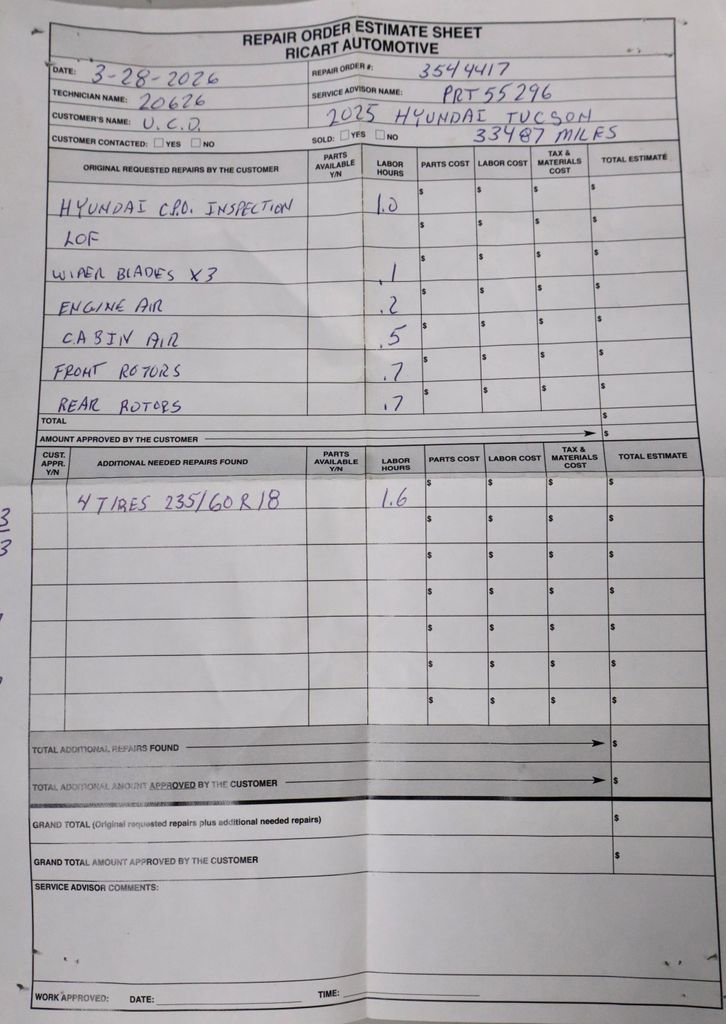 REPAIR ORDER ESTIMATE SHEET
RICART AUTOMOTIVE
DATE: 3-28-2026
REPAIR ORDER #: 3544417
TECHNICIAN NAME: 20626
SERVICE ADVISOR NAME: PRT55296
CUSTOMER'S NAME: U.C.D.
2025 HYUNDAI TUCSON
CUSTOMER CONTACTED: YES NO
SOLD: YES NO
33487 MILES
ORIGINAL REQUESTED REPAIRS BY THE CUSTOMER
PARTS AVAILABLE Y/N
LABOR HOURS
PARTS COST
LABOR COST
TAX & MATERIALS COST
TOTAL ESTIMATE
HYUNDAI C.P.O. INSPECTION 1.0 $ $ $ $
LOF $ $ $ $
WIPER BLADES X3 .1 $ $ $ $
ENGINE AIR .2 $ $ $ $
CABIN AIR .5 $ $ $ $
FRONT ROTORS .7 $ $ $ $
REAR ROTORS .7 $ $ $ $
TOTAL $
AMOUNT APPROVED BY THE CUSTOMER $
CUST. APPR. Y/N
ADDITIONAL NEEDED REPAIRS FOUND
PARTS AVAILABLE Y/N
LABOR HOURS
PARTS COST
LABOR COST
TAX & MATERIALS COST
TOTAL ESTIMATE
4 TIRES 235/60R18 1.6 $ $ $ $
$ $ $ $
$ $ $ $
$ $ $ $
$ $ $ $
$ $ $ $
$ $ $ $
TOTAL ADDITIONAL REPAIRS FOUND $
TOTAL ADDITIONAL AMOUNT APPROVED BY THE CUSTOMER $
GRAND TOTAL (Original requested repairs plus additional needed repairs) $
GRAND TOTAL AMOUNT APPROVED BY THE CUSTOMER $
SERVICE ADVISOR COMMENTS:
WORK APPROVED: DATE: TIME:
3
3